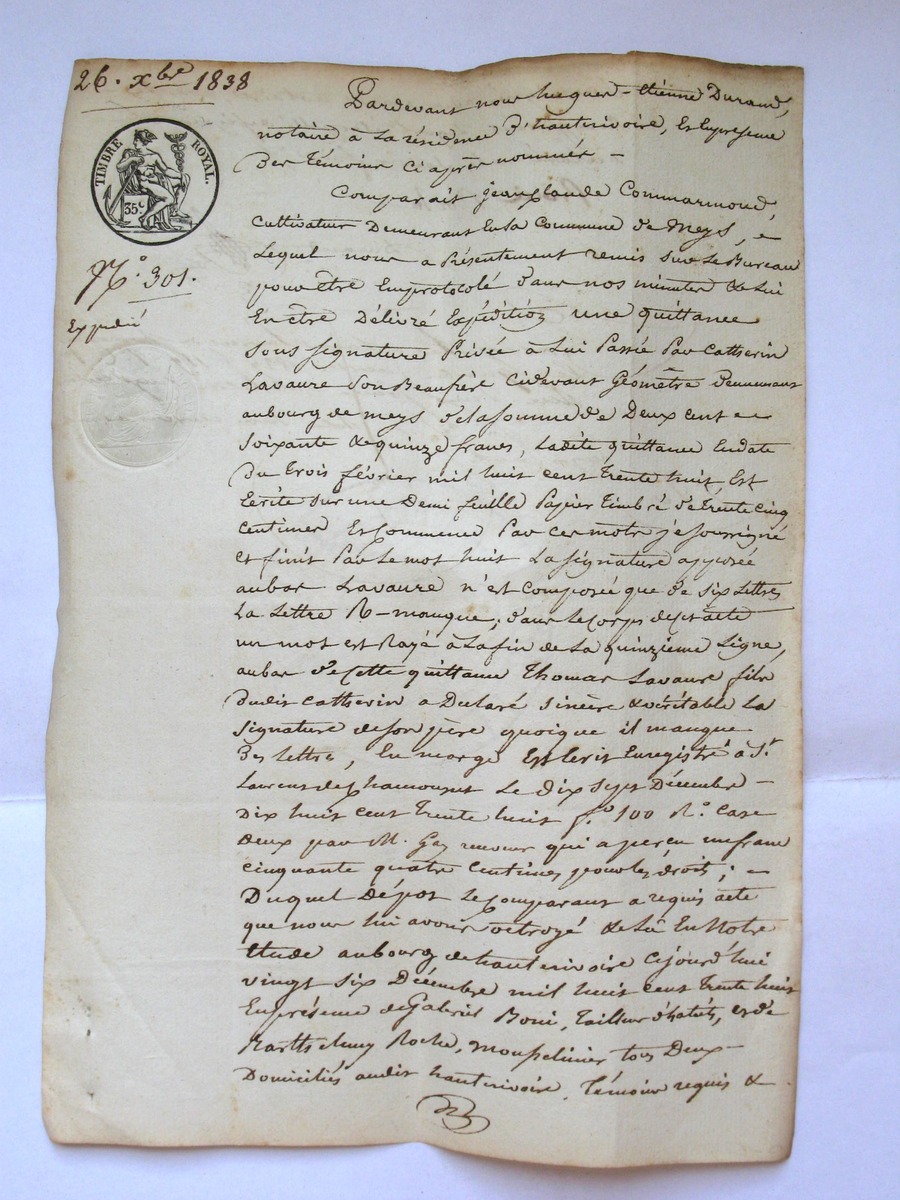 26. xbre 1838
TIMBRE ROYAL.
35c
No. 301.
Expédié
Pardevant nous hugues-Etienne Durand,
notaire à La résidence D'hauterivoire, Et Enprésence
Des Témoins Ci après nommés -
Comparait jeanclaude Commarmond,
Cultivateur Demeurant Ensa Commune de meys,
Lequel nous a Présentement remis sur Le Bureau
pour être Emprotocolé dans nos minutes & Lui
En être Délivré Expédition une quittance
Sous Signature Privée à Lui Passée Par Catherin
Lavaure Son Beaufrère Cidevant Géomètre Demeurant
aubourg de meys de la somme de Deux cent
Soixante & quinze francs, Ladite quittance Endate
Du trois février mil huit cent trente huit, Est
Ecrite Sur une Demi feuille Papier Timbré de trente cinq
Centimes Et Commence Par ces mots je soussigné
et finit Par Le mot huit La signature apposée
aubas Lavaure n'est Composée que de Six Lettres
La Lettre R manque; dans Le corps decet acte
un mot est Rayé à La fin de La quinzième Ligne,
aubas de Cette quittance Thomas Lavaure fils
dudit Catherin a Déclaré sincère & véritable La
Signature de son père quoique il manque
Des lettres, En marge Est Ecrit Enregistré à St
Laurent de Chamousset Le Dix Sept Décembre -
Dix huit cent Trente huit fo 100 Ro Case
deux par M. Gay receveur qui a perçu un franc
cinquante quatre Centimes pour les droits;
Duquel Dépot Le Comparant a requis acte
que nous lui avons octroyé & Lu En Notre
Etude aubourg de hauterivoire Cejourd'hui
vingt Six Décembre mil huit cent Trente huit
Enprésence de Gabriel Boni, Tailleur d'habits, et de
Barthelemy Roche, Domiciliés tous Deux
Domiciliés audit hauterivoire, Témoins requis &